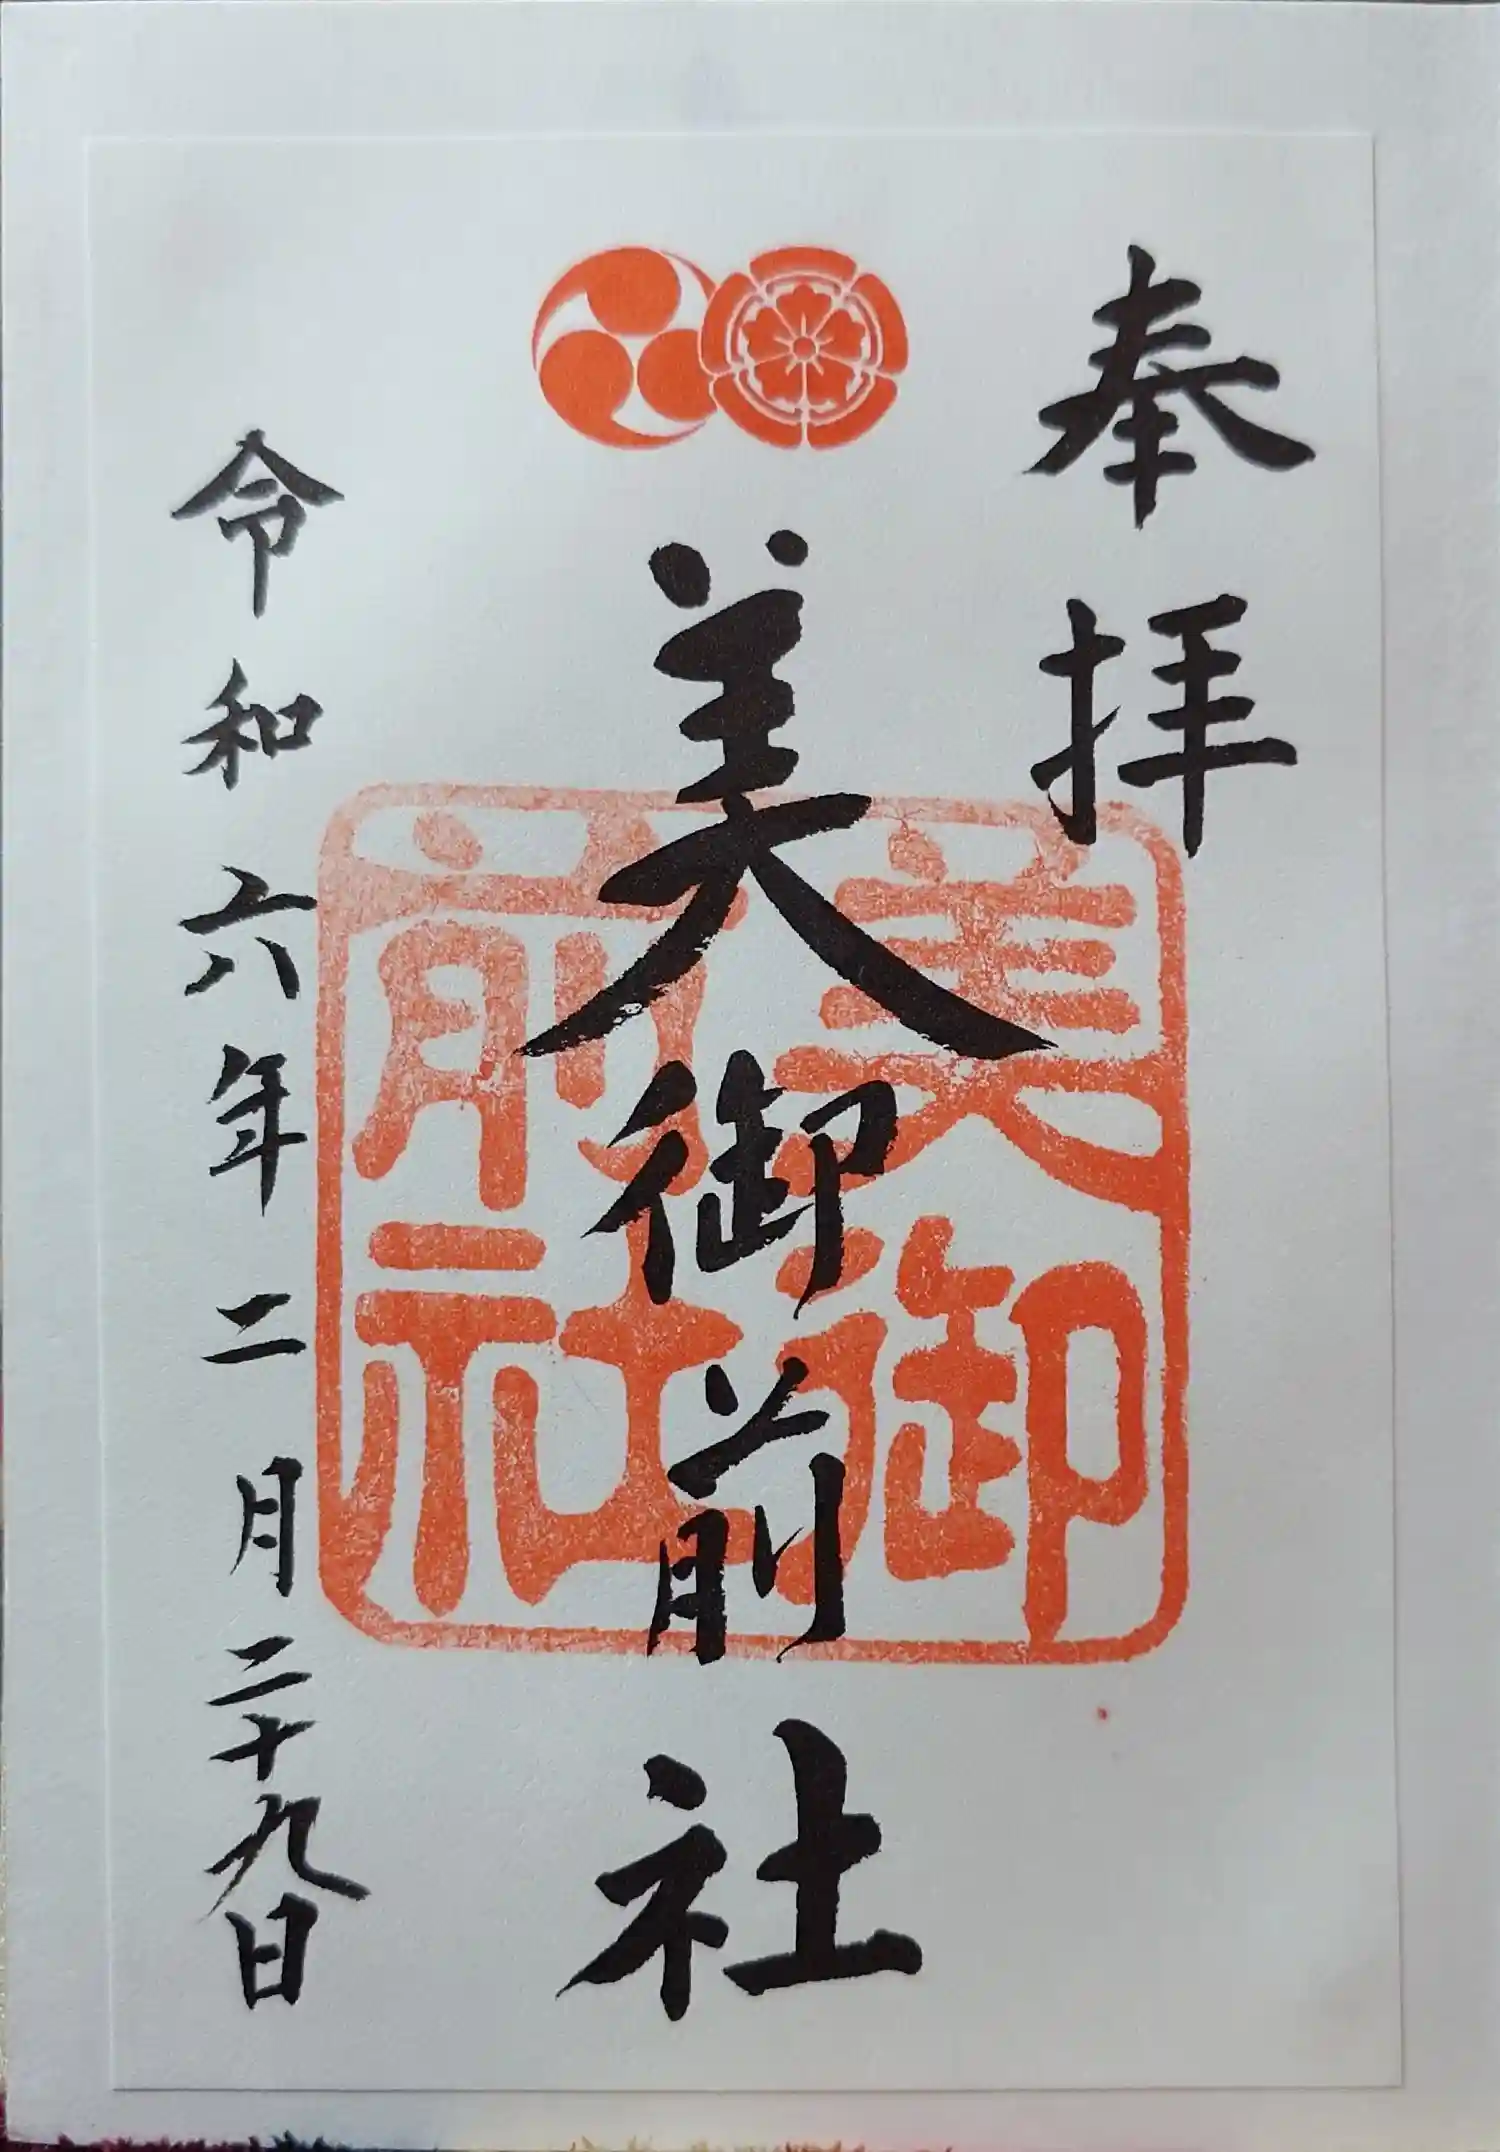 奉拝
美御前社
美御前社
令和六年二月二十九日